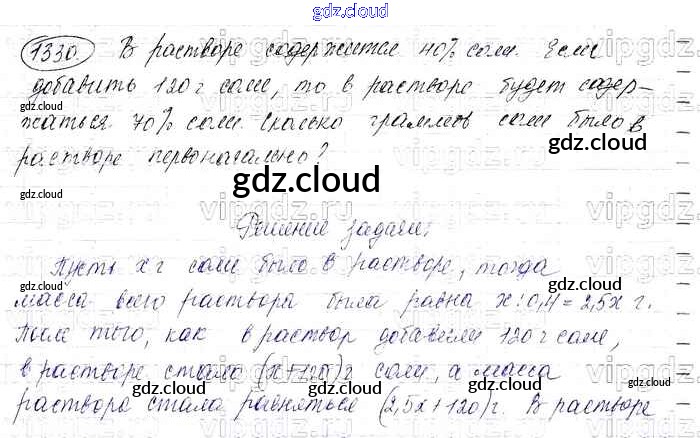 gdz.cloud
1330. В растворе содержится 40% соли. Если
добавить 120 г соли, то в растворе будет содер-
жаться 70% соли. Сколько граммов соли было в
растворе первоначально?
gdz.cloud
Решение задачи:
Пусть x г соли было в растворе, тогда
масса всего раствора была равна x : 0,4 = 2,5x г.
После того, как в раствор добавили 120 г соли,
в растворе стало (x+120) г соли, а масса
раствора стала равняться (2,5x+120) г. В растворе